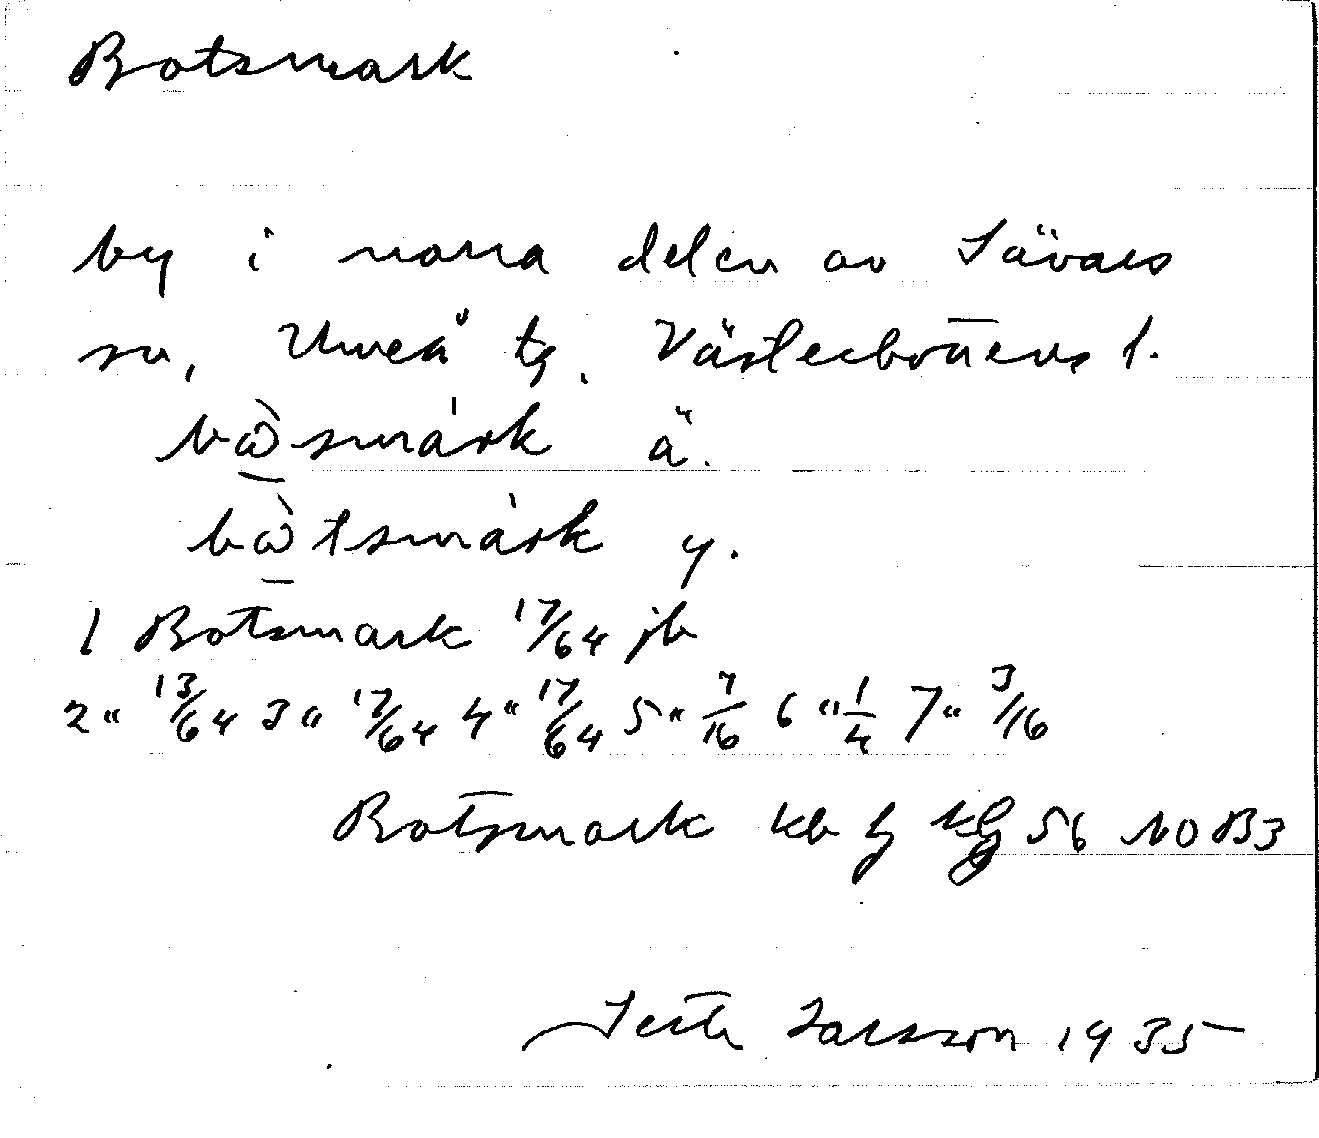 Botsmark
by i norra delen av Sävars
sn, Umeå tg. Västerbottens l.
bù̱smárk ä.
bù̱tsmárk y.
1 Botsmark 17/64 jb
2 " 13/64 3 " 17/64 4 " 17/64 5 " 7/16 6 " 1/4 7 " 3/16
Botsmark kb 56 NO B3
Larsson 1935